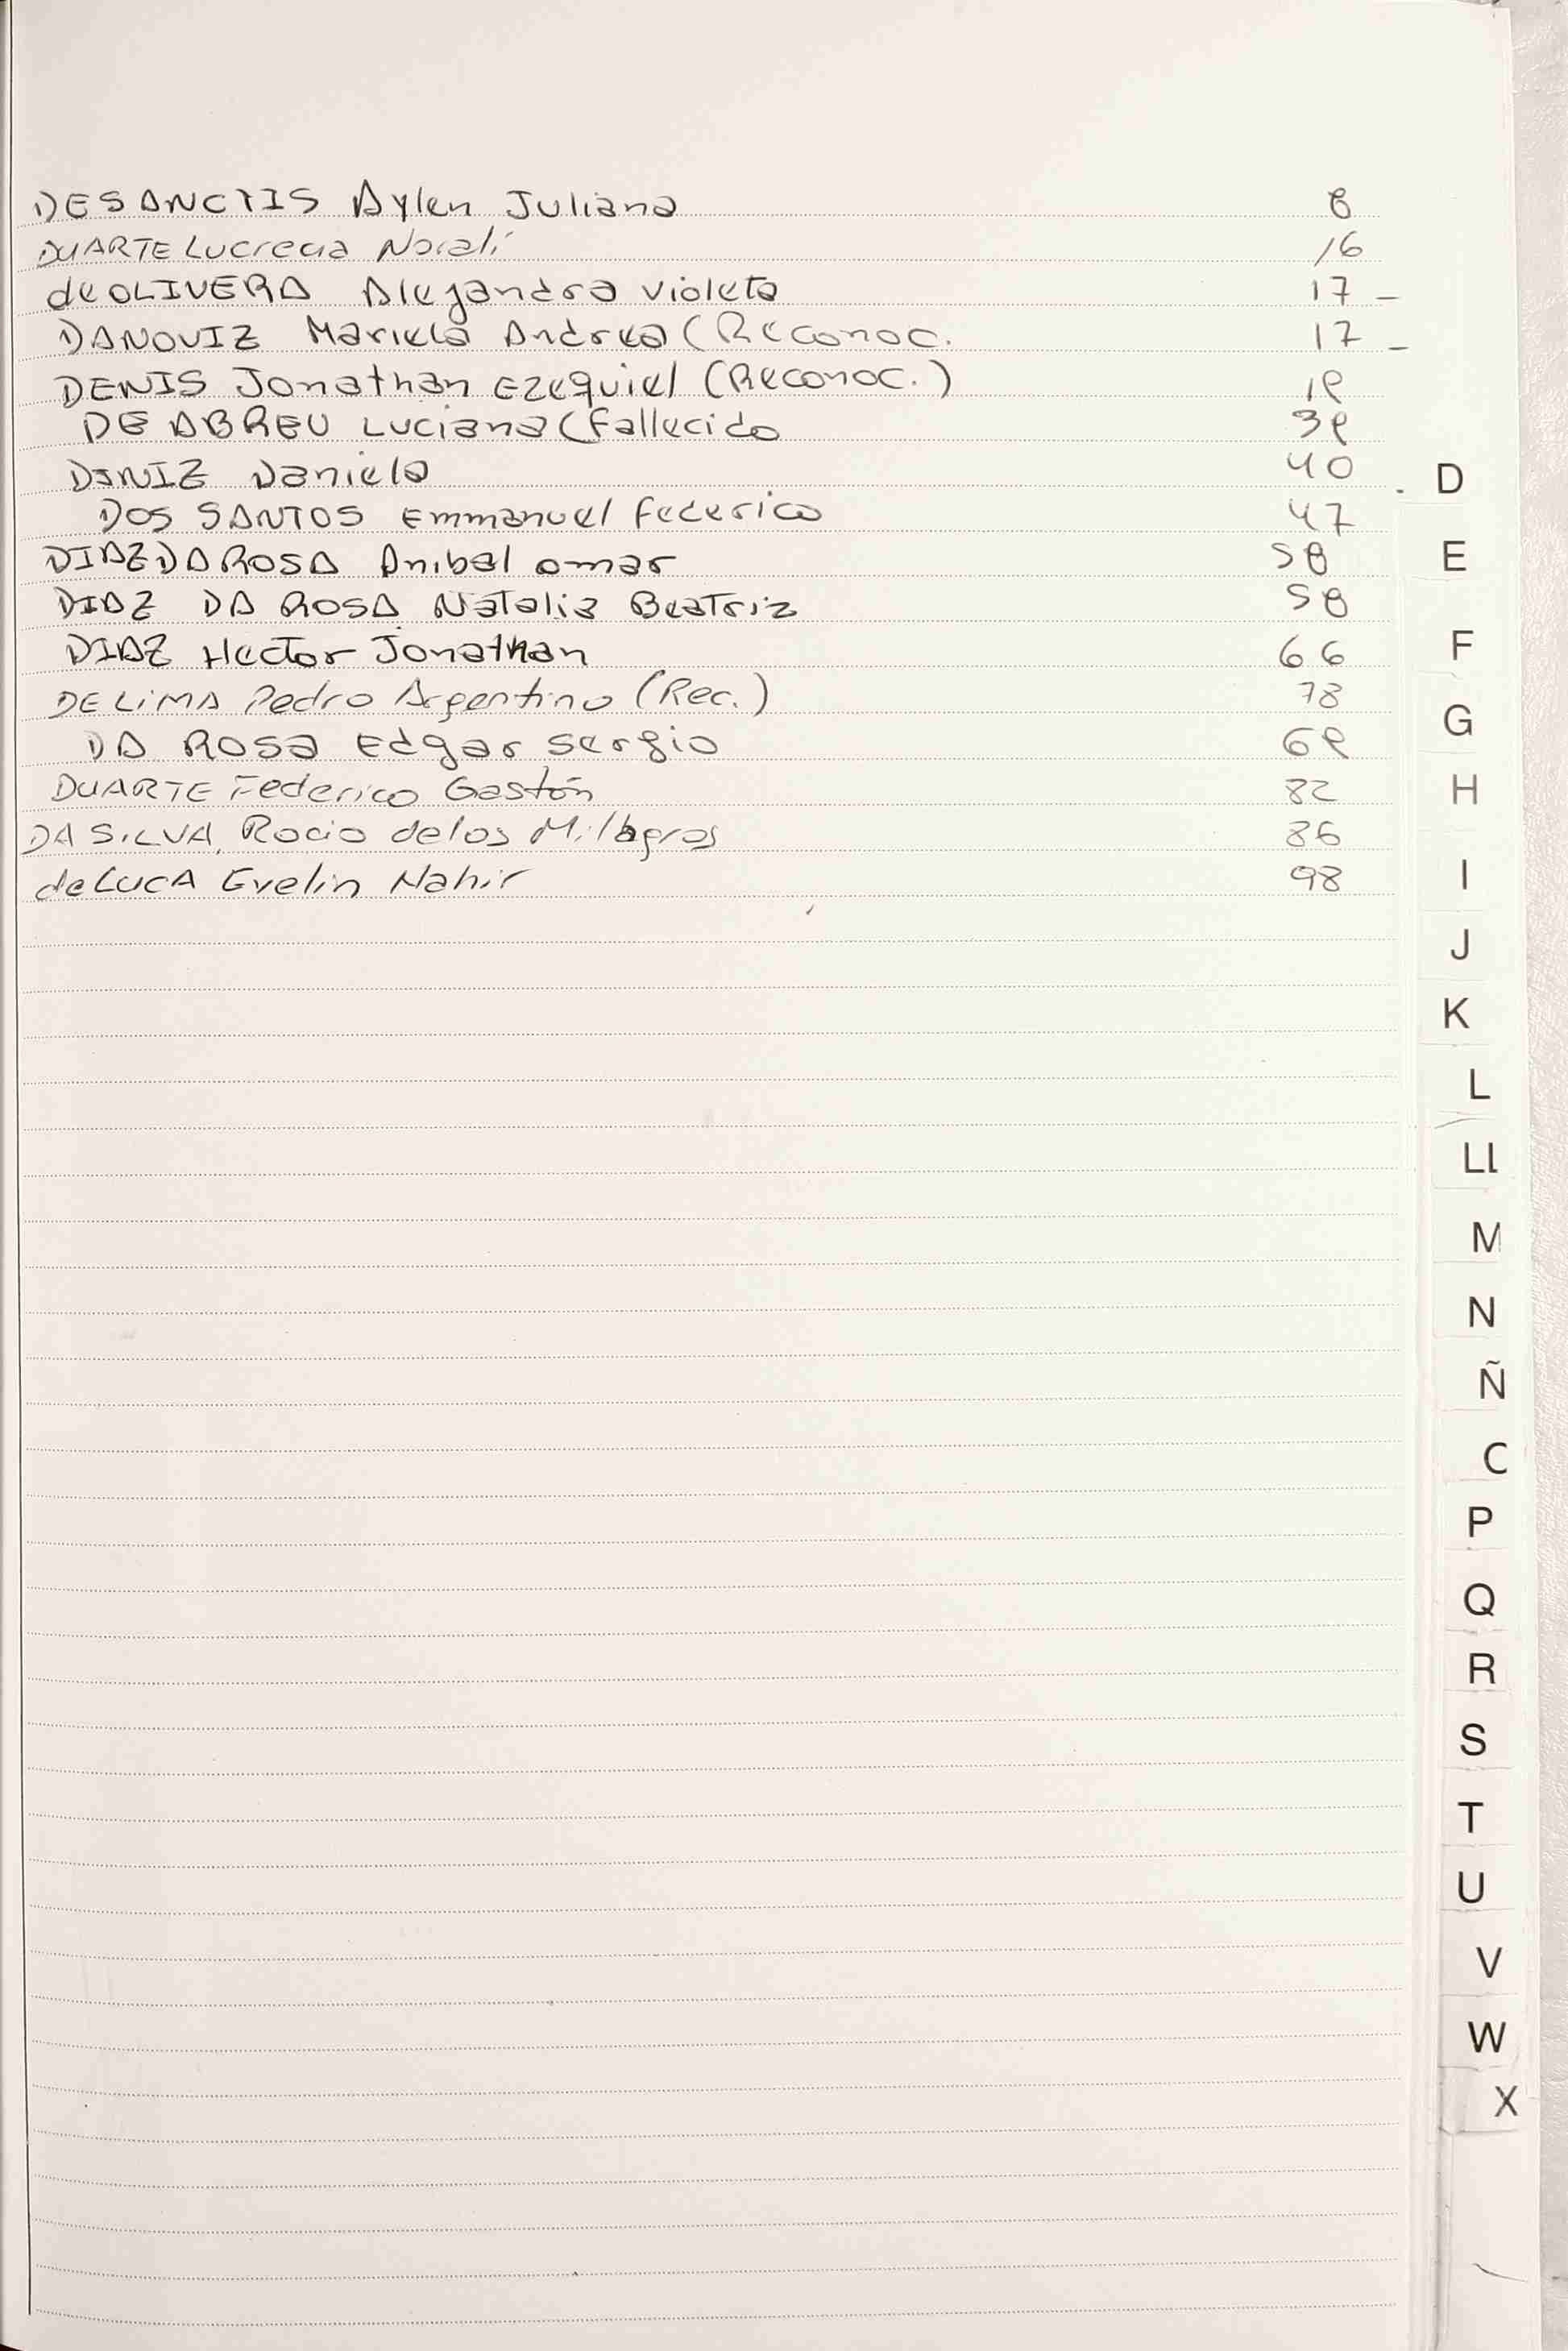 DESANCTIS Aylen Juliana 8
DUARTE Lucrecia Noralí 16
de OLIVERA Alejandra Violeta 17 -
DANOVIZ Mariela Andrea (Reconoc. 17 -
DENIS Jonathan Ezequiel (Reconoc.) 19
DE ABREU Luciana (Fallecido 39
DINIZ Daniela 40
DOS SANTOS Emmanuel Federico 47
DIAZ DA ROSA Anibal Omar 58
DIAZ DA ROSA Natalia Beatriz 58
DIAZ Hector Jonathan 66
DE LIMA Pedro Argentino (Rec.) 78
DA ROSA Edgar Sergio 69
DUARTE Federico Gastón 82
DA SILVA, Rocio de los Milagros 86
de LUCA Evelin Nahir 98
D
E
F
G
H
I
J
K
L
LL
M
N
Ñ
P
Q
R
S
T
U
V
W
X